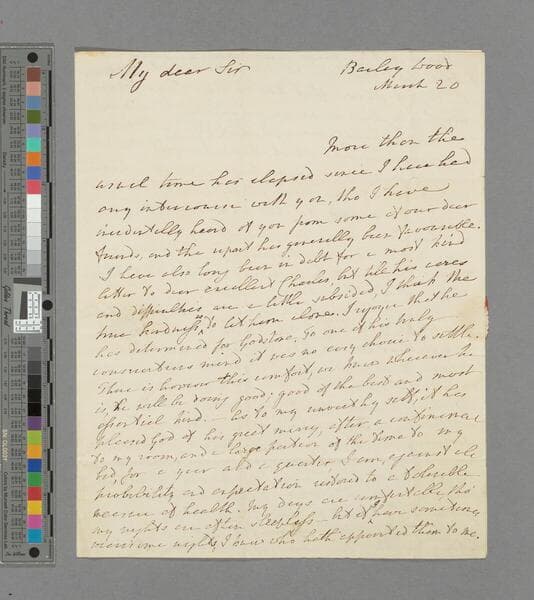 My dear Sir
Barley Wood
March 20
More than the
usual time has elapsed since I have had
any intercourse with you, tho I have
incidentally heard of you from some of our dear
friends, and the report has generally been favourable.
I have also long been in debt for a most kind
letter to dear excellent Charles, but till his cares
and difficulties are a little subsided, I think the
true kindness is to let him alone. I rejoice that he
has determined for Godstone. To one of his truly
conscientious mind it was no easy choice to settle.
There is however this comfort, we know wherever he
is, he will be doing good; good of the best and most
essential kind. — As to my unworthy self, it has
pleased God of his great mercy, after a confinement
to my room, and a large portion of the time to my
bed, for a year and a quarter I am, against all
probability and expectation restored to a tolerable
measure of health. My days are comfortable, tho'
my nights are often sleepless — but if I have sometimes
wearisome nights, I know who hath appointed them to me.